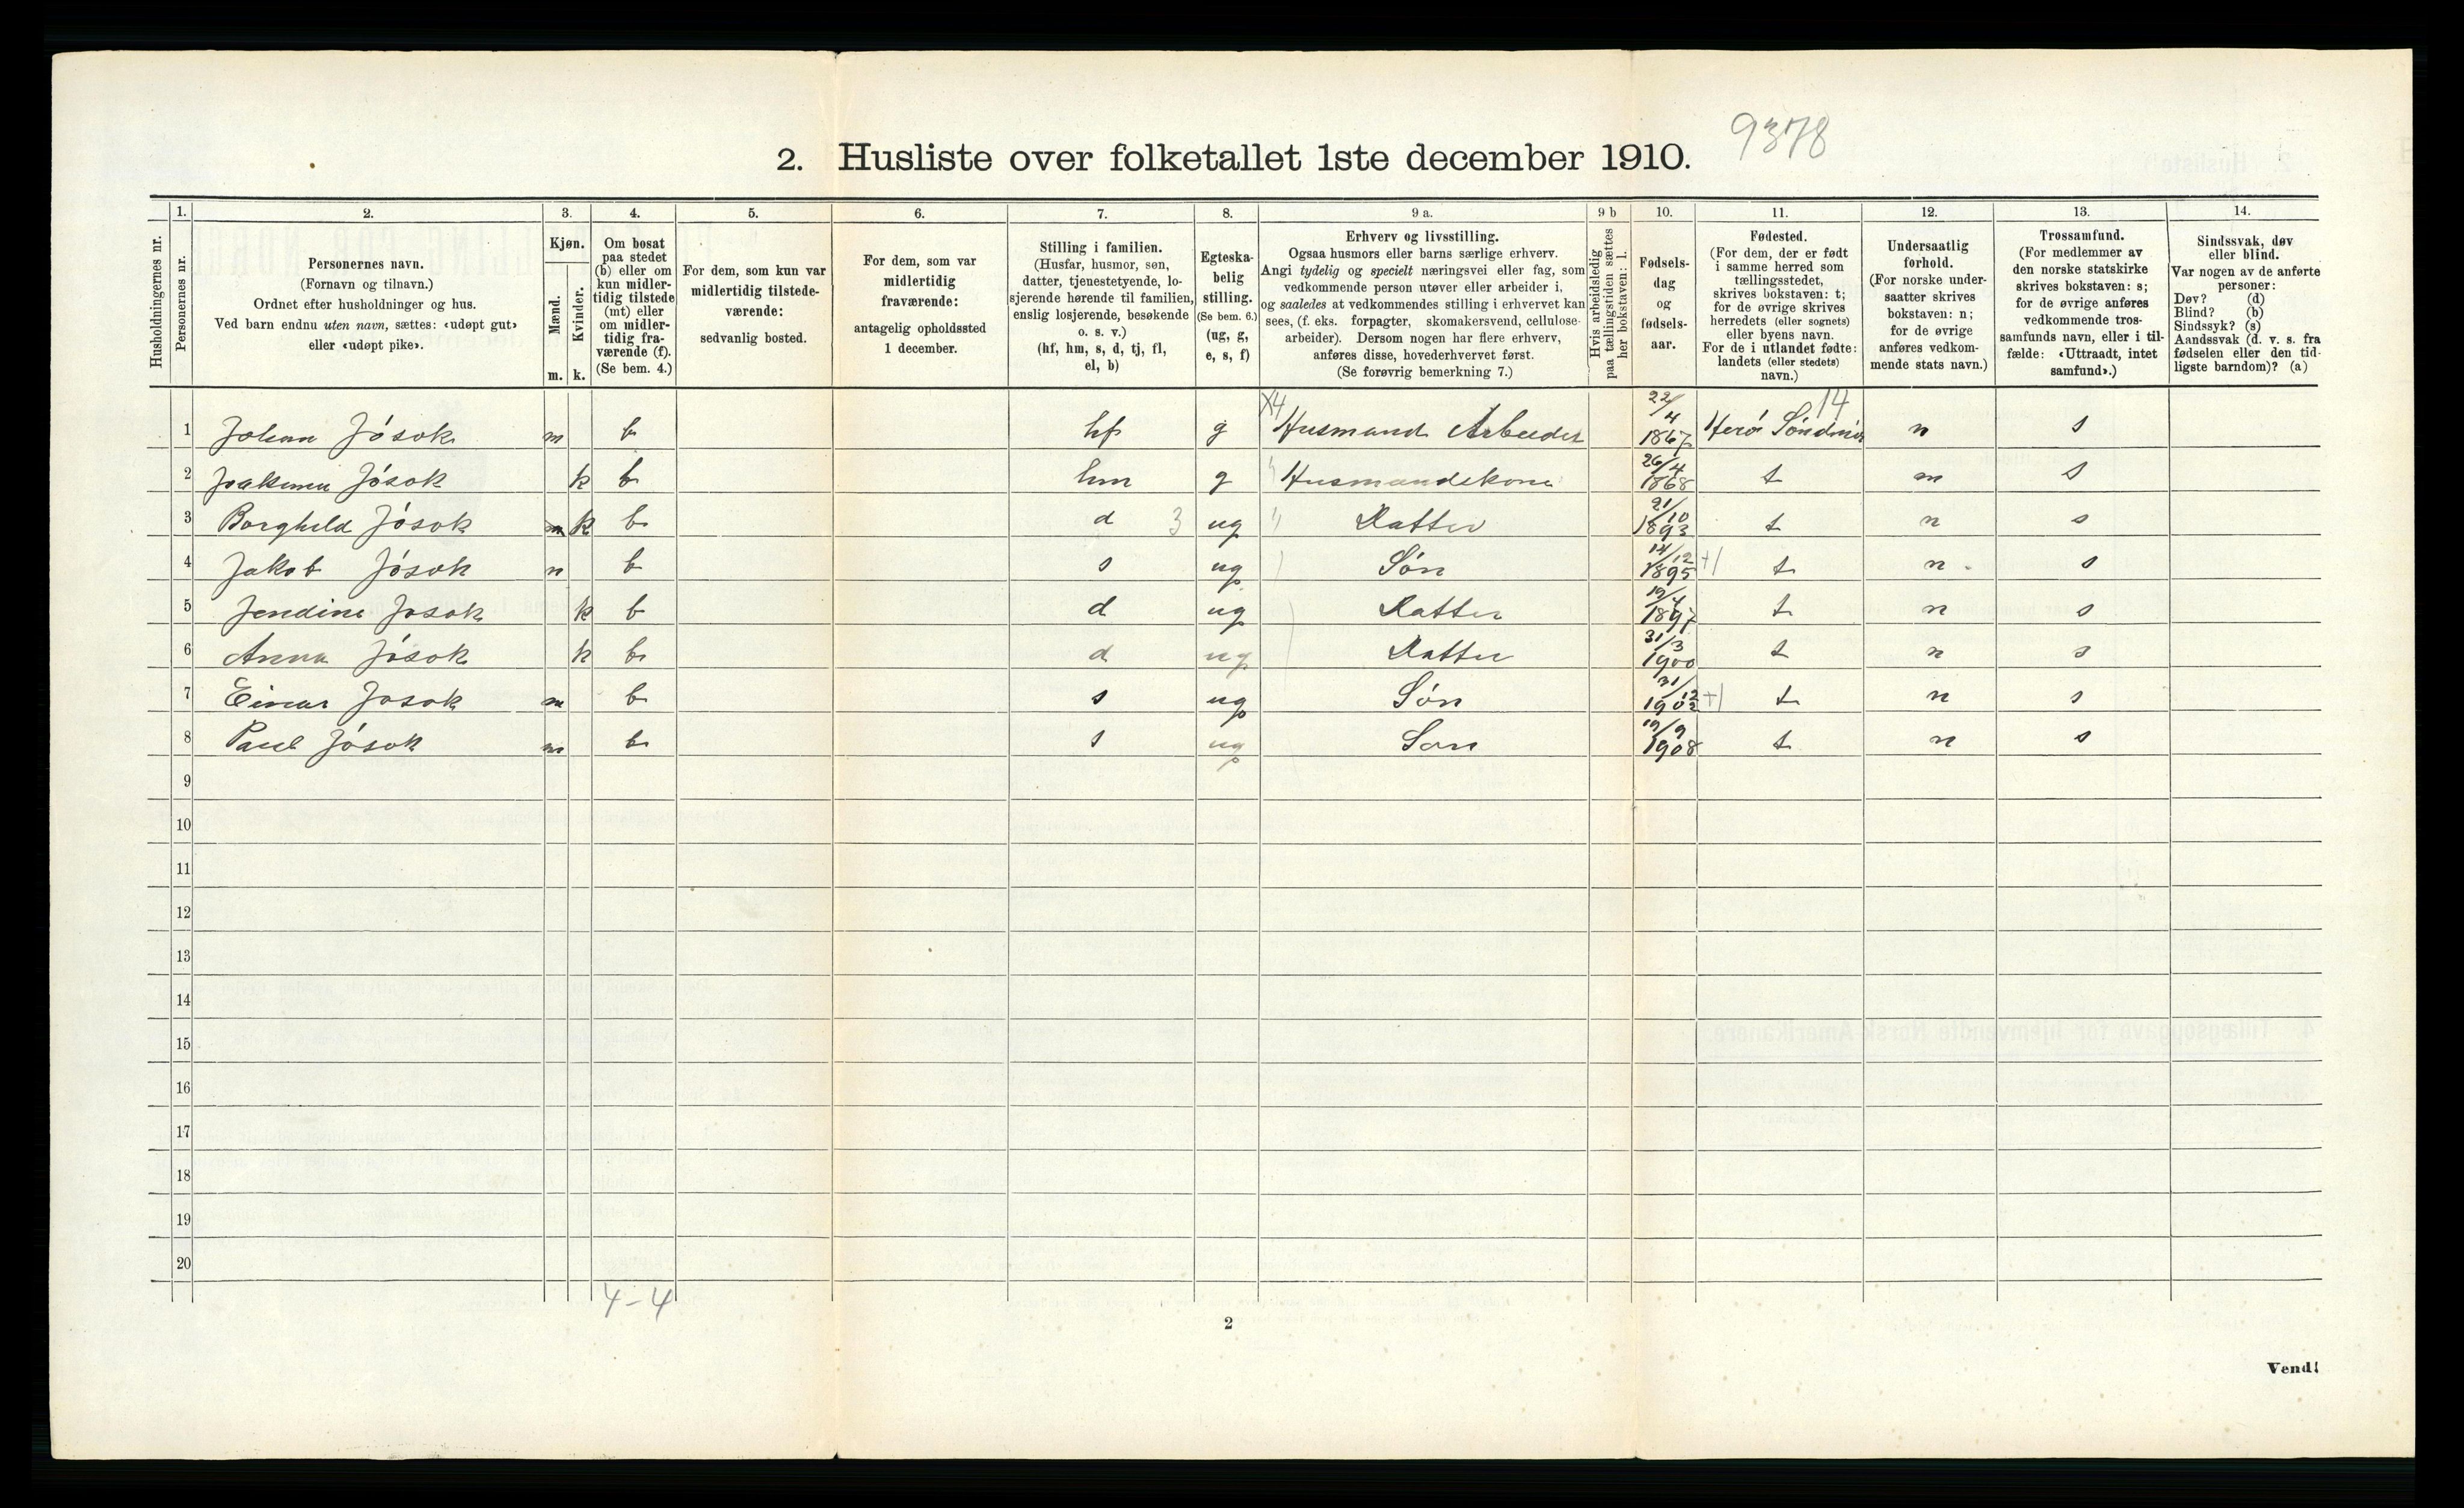 9378
2. Husliste over folketallet 1ste december 1910.
Husholdningernes nr.
1. Personernes nr.
2. Personernes navn. (Fornavn og tilnavn.) Ordnet efter husholdninger og hus. Ved barn endnu uten navn, sættes: «udøpt gut» eller «udøpt pike».
3. Kjøn. Mænd. m. Kvinder. k.
4. Om bosat paa stedet (b) eller om kun midlertidig tilstede (mt) eller om midlertidig fraværende (f). (Se bem. 4.)
5. For dem, som kun var midlertidig tilstedeværende: sedvanlig bosted.
6. For dem, som var midlertidig fraværende: antagelig opholdssted 1 december.
7. Stilling i familien. (Husfar, husmor, søn, datter, tjenestetyende, losjerende hørende til familien, enslig losjerende, besøkende o. s. v.) (hf, hm, s, d, tj, fl, el, b)
8. Egteskabelig stilling. (Se bem. 6.) (ug, g, e, s, f)
9 a. Erhverv og livsstilling. Ogsaa husmors eller barns særlige erhverv. Angi tydelig og specielt næringsvei eller fag, som vedkommende person utøver eller arbeider i, og saaledes at vedkommendes stilling i erhvervet kan sees, (f. eks. forpagter, skomakersvend, cellulosearbeider). Dersom nogen har flere erhverv, anføres disse, hovederhvervet først. (Se forøvrig bemerkning 7.)
9 b Hvis arbeidsledig paa tællingstiden sættes her bokstaven: l.
10. Fødselsdag og fødselsaar.
11. Fødested. (For dem, der er født i samme herred som tællingsstedet, skrives bokstaven: t; for de øvrige skrives herredets (eller sognets) eller byens navn. For de i utlandet fødte: landets (eller stedets) navn.)
12. Undersaatlig forhold. (For norske undersaatter skrives bokstaven: n; for de øvrige anføres vedkommende stats navn.)
13. Trossamfund. (For medlemmer av den norske statskirke skrives bokstaven: s; for de øvrige anføres vedkommende trossamfunds navn, eller i tilfælde: «Uttraadt, intet samfund».)
14. Sindssvak, døv eller blind. Var nogen av de anførte personer: Døv? (d) Blind? (b) Sindssyk? (s) Aandssvak (d. v. s. fra fødselen eller den tidligste barndom)? (a)
1 Johan Jósok m b hf g X4 Husmand Arbeider 22/4 1867 Herø Söndmör 14 n s
2 Joakimea Jósok k b hm g " Husmandskone 26/4 1868 t n s
3 Borghild Jósok m k b d 3 ug " Datter 21/10 1893 t n s
4 Jakob Jósok m b s ug Søn 14/12 1895 +1 t n s
5 Jendine Josok k b d ug Datter 19/4 1897 t n s
6 Anna Jósok k b d ug Datter 31/3 1900 t n s
7 Einar Josok m b s ug Søn 31/12 1902 +1 t n s
8 Paul Jósok m b s ug Søn 19/9 1908 t n s
9
10
11
12
13
14
15
16
17
18
19
20
4-4
2
Vend!